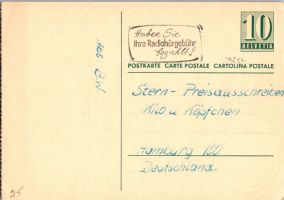 Haben Sie
Ihre Radiohörgebühr
bezahlt?
10
HELVETIA
POSTKARTE CARTE POSTALE CARTOLINA POSTALE
Stern - Preisausschreiben
Kilo u Köpfchen
Hamburg 100
Deutschland.
25